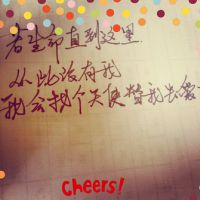 若生命直到这里
从此没有我
我会找个天使替我去爱
Cheers!